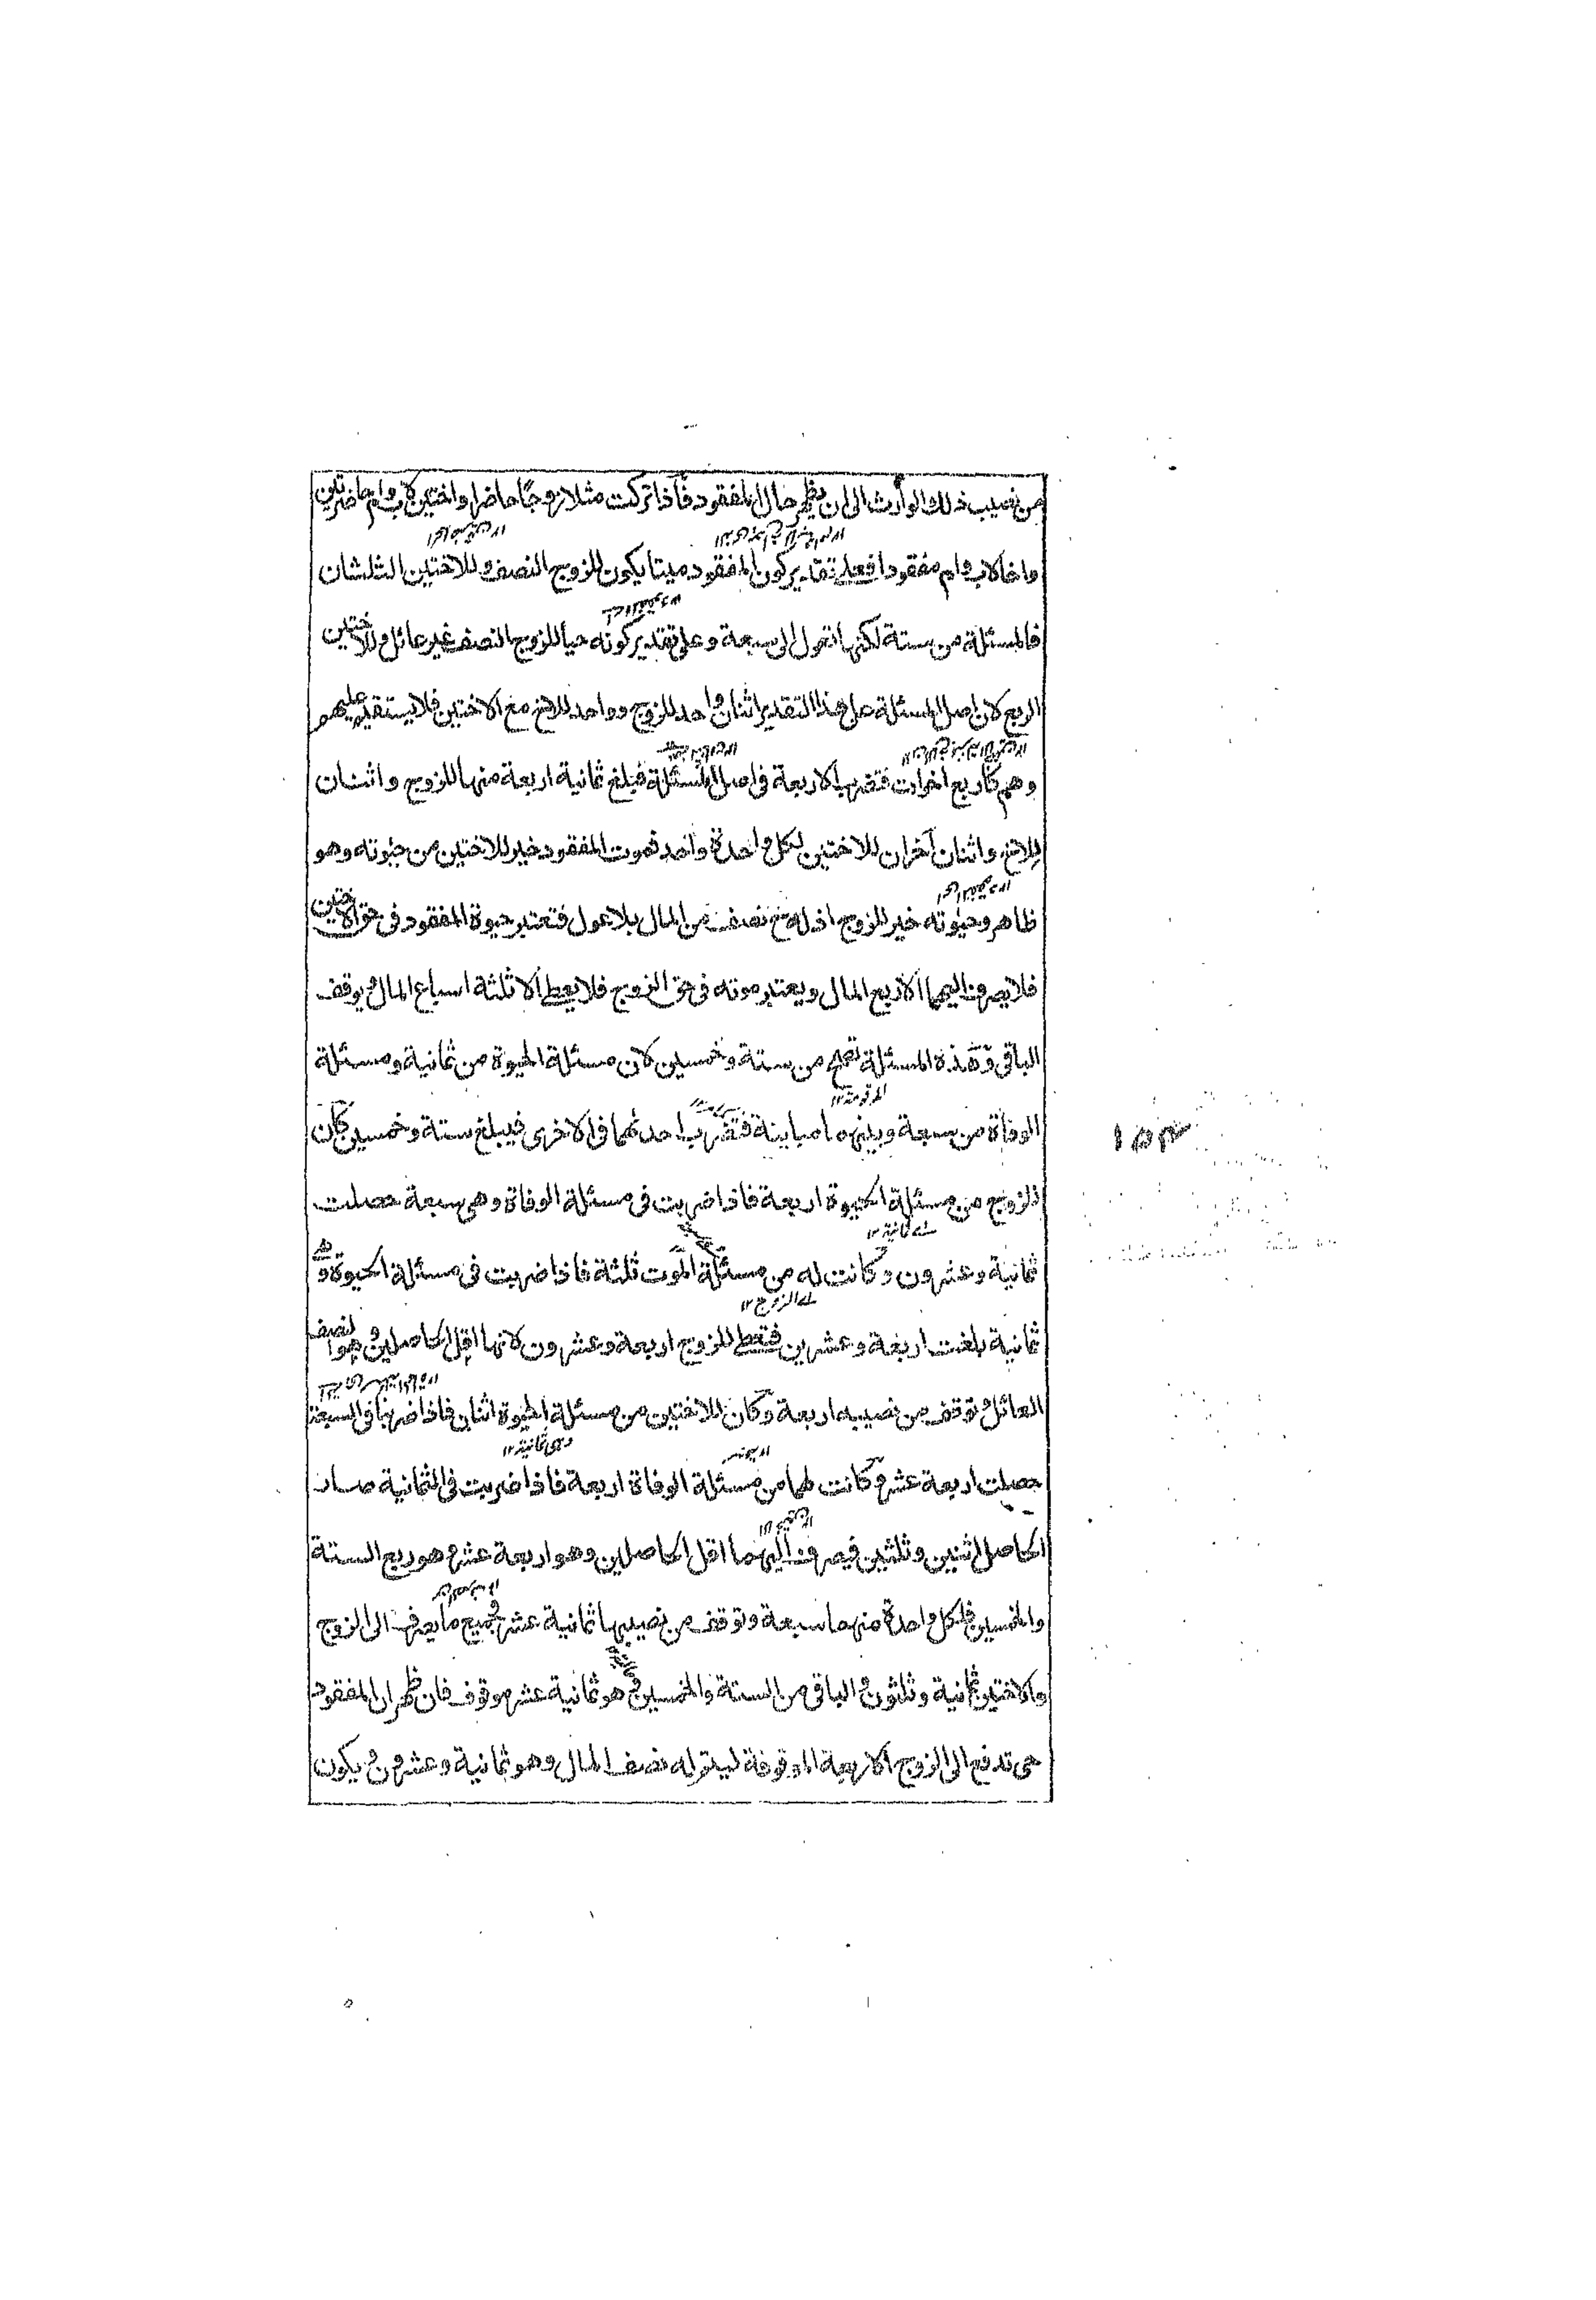 من نصيب ذلك الوارث الى ان يظهر حال المفقود فاذا تركت مثلا زوجًا حاضرا واختين لاب وام حاضرتين
واخا لاب وام مفقودا فعلى تقدير كون المفقود ميتا يكون للزوج النصف وللاختين الثلثان
فالمسئلة من ستة لكنها تعول الى سبعة وعلى تقدير كونه حيا للزوج النصف غير عائل وللاختين
الربع لان اصل المسئلة على هذا التقدير اثنان واحد للزوج وواحد للاخ مع الاختين فلا يستقيم عليهم
وهم كاربع اخوات فتضرب الاربعة فى اصل المسئلة فبلغ ثمانية اربعة منها للزوج واثنان
للاخ واثنان آخران للاختين لكل واحدة واحد فموت المفقود خير للاختين من حيوته وهو
ظاهر وحيوته خير للزوج اذ له نصف من المال بلا عول فتعتبر حيوة المفقود فى حق الاختين
فلا يصرف اليهما الا ربع المال ويعتبر موته فى حق الزوج فلا يعطى الا ثلثة اسباع المال ويوقف
الباقى وهذه المسئلة تصح من ستة وخمسين لان مسئلة الحيوة من ثمانية ومسئلة
المرقومة ١٢
الوفاة من سبعة وبينهما مباينة فتضرب احدهما فى الاخرى فيبلغ ستة وخمسين كان
١٥٣
للزوج من مسئلة الحيوة اربعة فاذا ضربت فى مسئلة الوفاة وهى سبعة حصلت
اے ثمانية ١٢
ثمانية وعشرون وكانت له من مسئلة الموت ثلثة فاذا ضربت فى مسئلة الحيوة وهى
اے الزوج ١٢
ثمانية بلغت اربعة وعشرين فتعطى للزوج اربعة وعشرون لانها اقل الحاصلين وهو النصف
العائل وتوقف من نصيبه اربعة وكان للاختين من مسئلة الحيوة اثنان فاذا ضربا فى السبعة
وهى ثمانية ١٢
حصلت اربعة عشر وكانت لهما من مسئلة الوفاة اربعة فاذا ضربت فى الثمانية صار
الحاصل اثنين وثلثين فيصرف اليهما اقل الحاصلين وهو اربعة عشر وهو ربع الستة
والخمسين فلكل واحدة منهما سبعة وتوقف من نصيبها ثمانية عشر فجميع ما يصرف الى الزوج
والاختين ثمانية وثلثون والباقى من الستة والخمسين وهو ثمانية عشر موقوف فان ظهر ان المفقود
حى تدفع الى الزوج الاربعة الموقوفة ليتم له نصف المال وهو ثمانية وعشرون ويكون